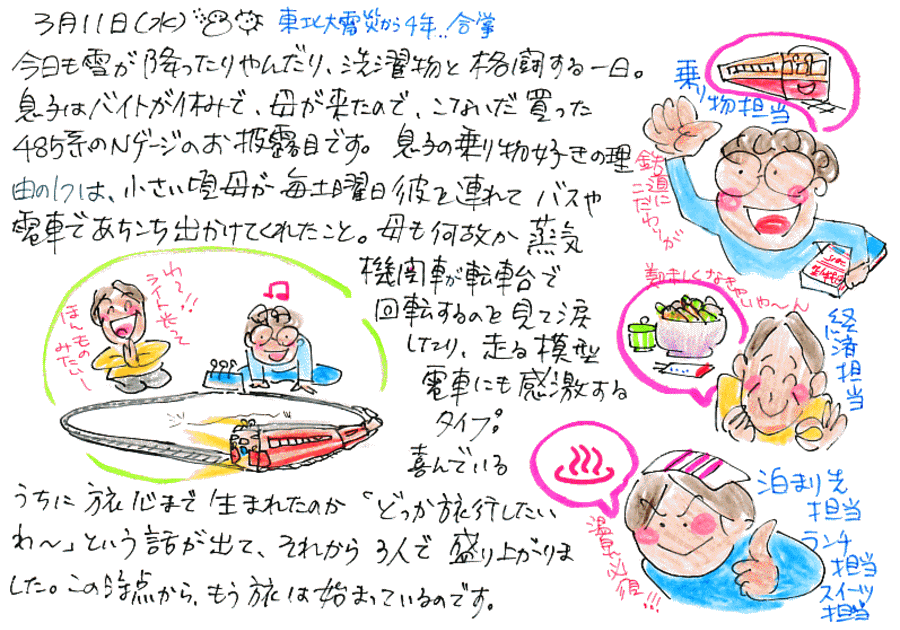 3月11日(水)
東北大震災から4年..合掌
今日も雪が降ったりやんだり、洗濯物と格闘する一日。
息子はバイトが休みで、母が来たので、こないだ買った
485系のNゲージのお披露目です。息子の乗り物好きの理
由の1つは、小さい頃母が毎土曜日彼を連れてバスや
電車であちこち出かけてくれたこと。母も何故か蒸気
機関車が転車台で
回転するのを見て涙
したり、走る模型
電車にも感激する
タイプ。
喜んでいる
うちに旅心まで生まれたのか「どっか旅行したい
わ〜」という話が出て、それから3人で盛り上がりま
した。この時点から、もう旅は始まっているのです。
わ〜!!
ライト光って
ほんものみたい〜
乗り物担当
鉄道に
こだわりが
美味しくなきゃいや〜ん
経済担当
温泉必須!!!
泊まり先
担当
ランチ
担当
スイーツ
担当